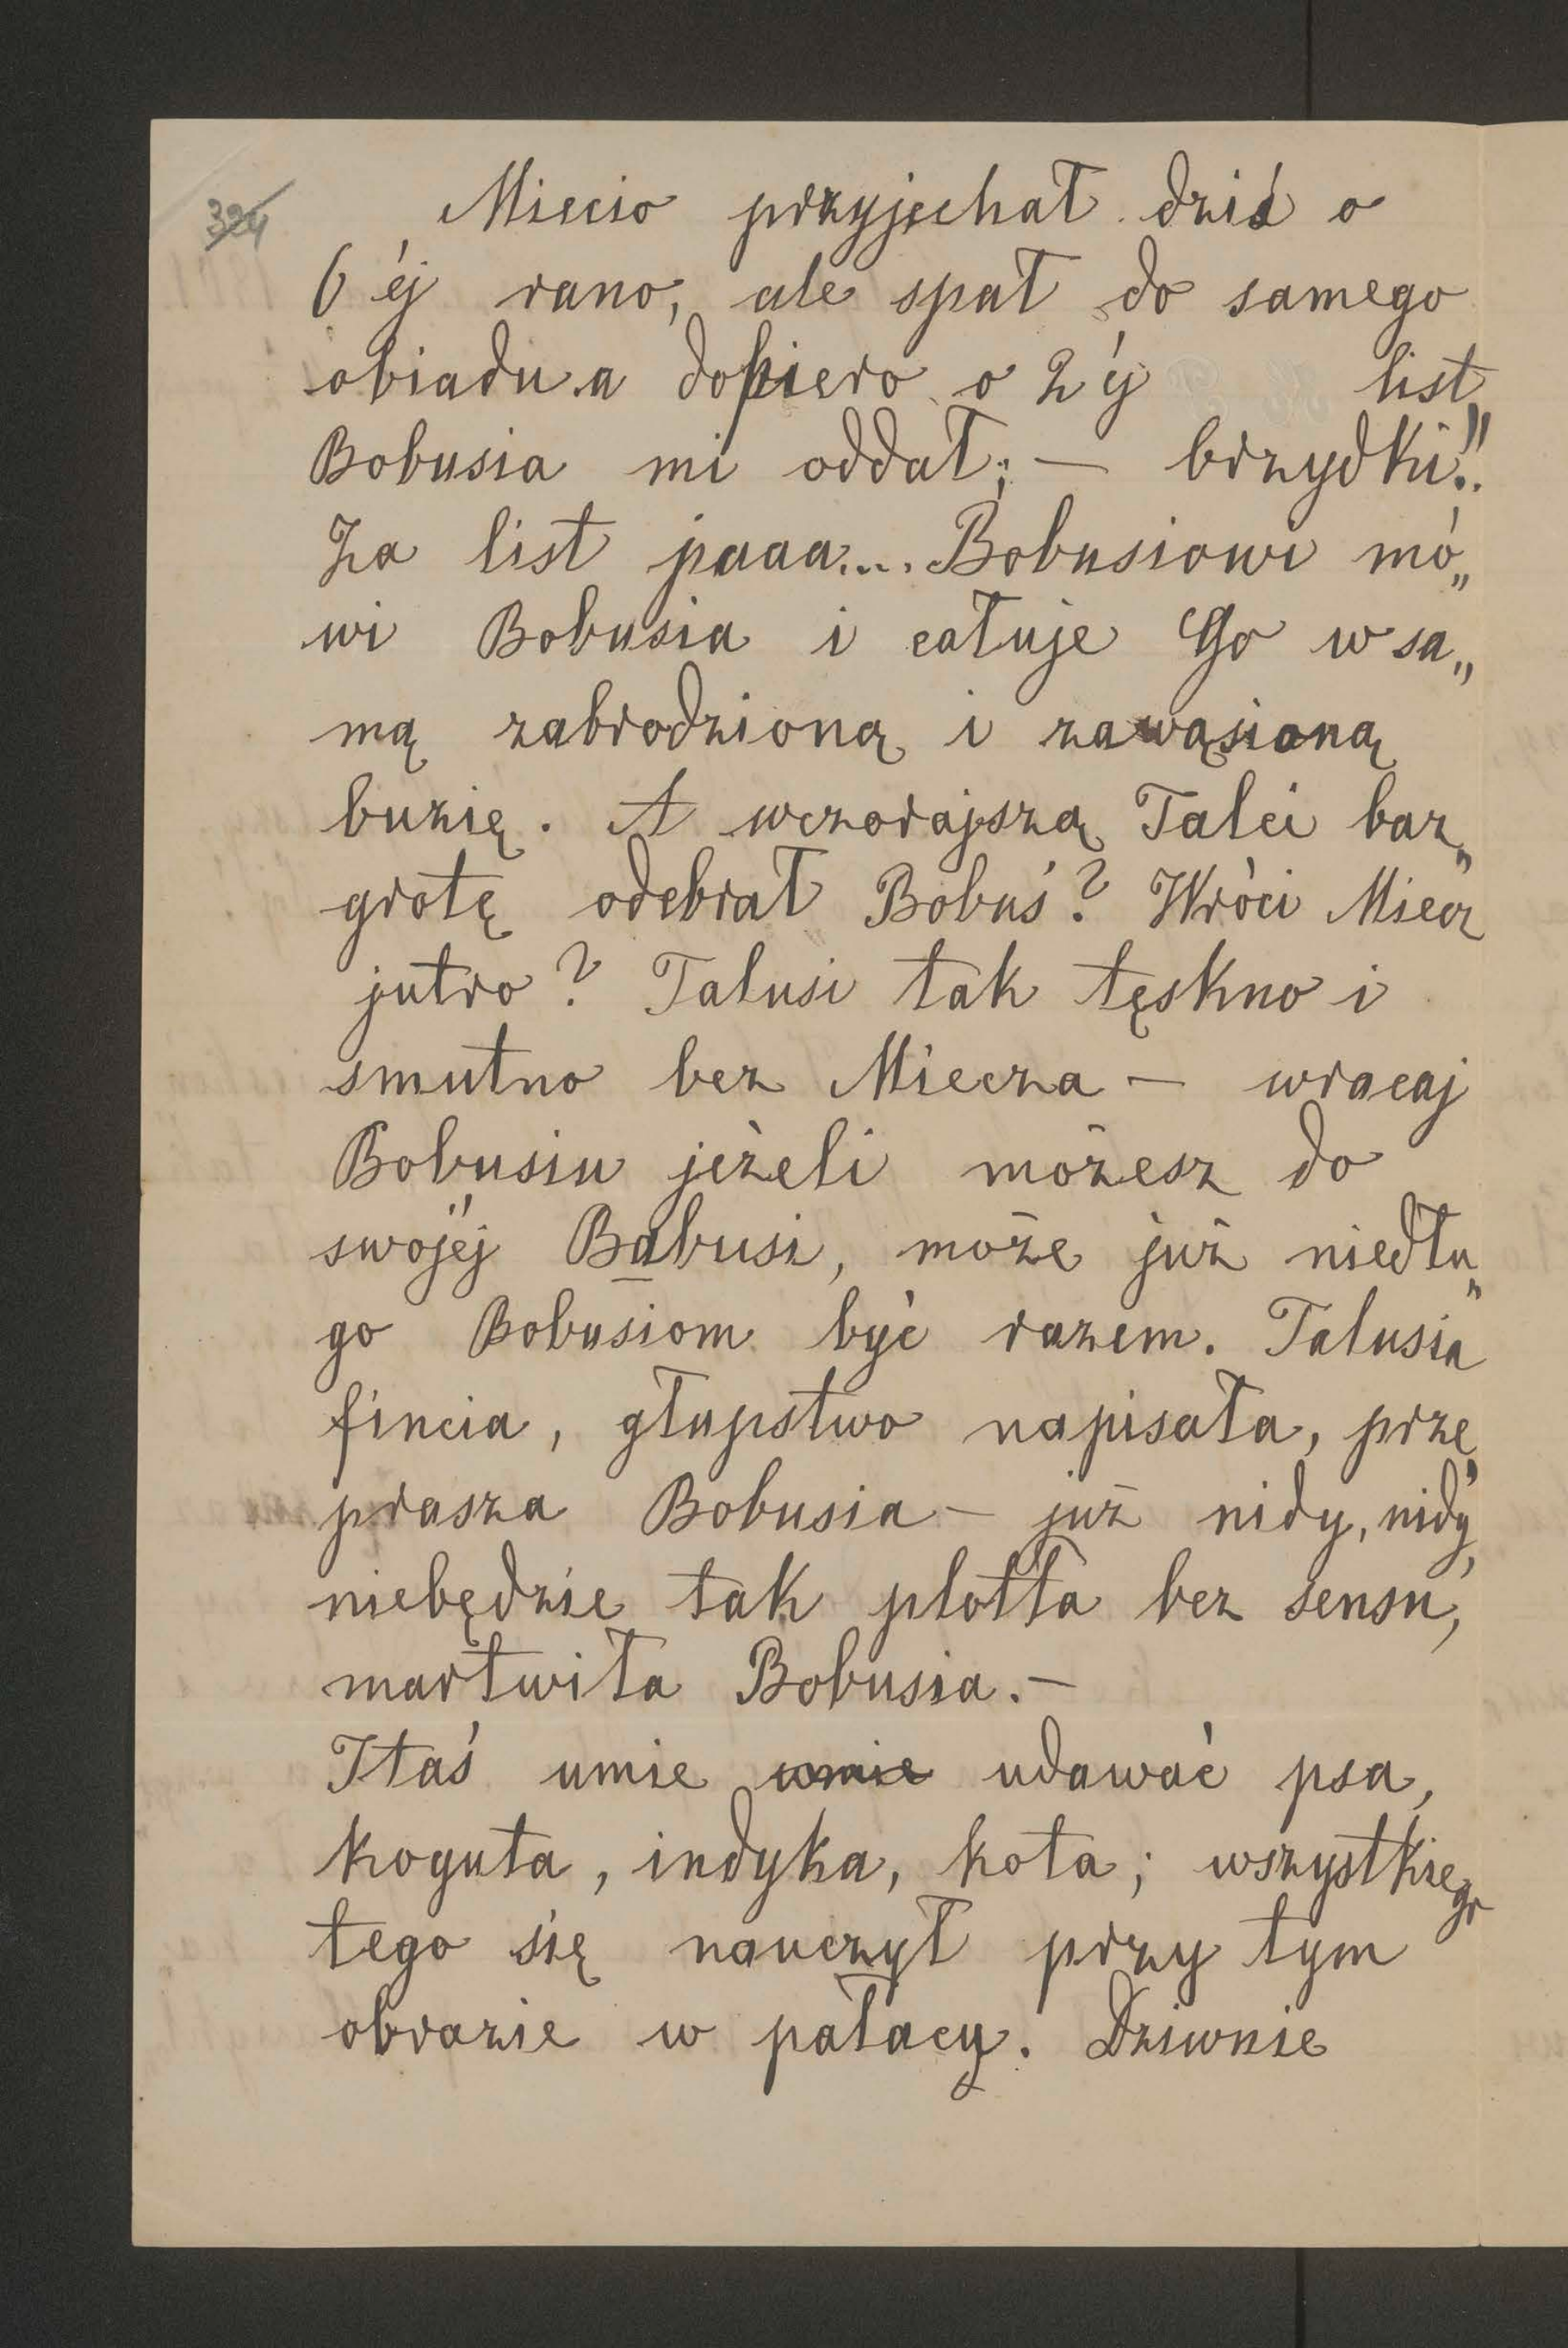 324
Miecio przyjechał dziś o
6 éj rano, ale spał do samego
obiadu a dopiero o 2 éj list
Bobusia mi oddał; — brzydki!!
Za list paaa.... Bobusiowi mó„
wi Bobusia i całuje Go w sa„
mą zabrodzioną i zawąsioną
buzię. A wczorajszą Talci baz„
grotę odebrał Bobuś? Wróci Miecz
jutro? Talusi tak tęskno i
smutno bez Miecza — wracaj
Bobusiu jeżeli możesz do
swojéj Babusi, może już niedłu„
go Bobusiom być razem. Talusia
fincia, głupstwo napisała, prze„
prasza Bobusia — już nidy, nidy
niebędzie tak plotła bez sensu,
martwiła Bobusia. —
Itaś umie umie udawać psa,
koguta, indyka, kota; wszystkiego
tego się nauczył przy tym
obrazie w pałacy. Dziwnie